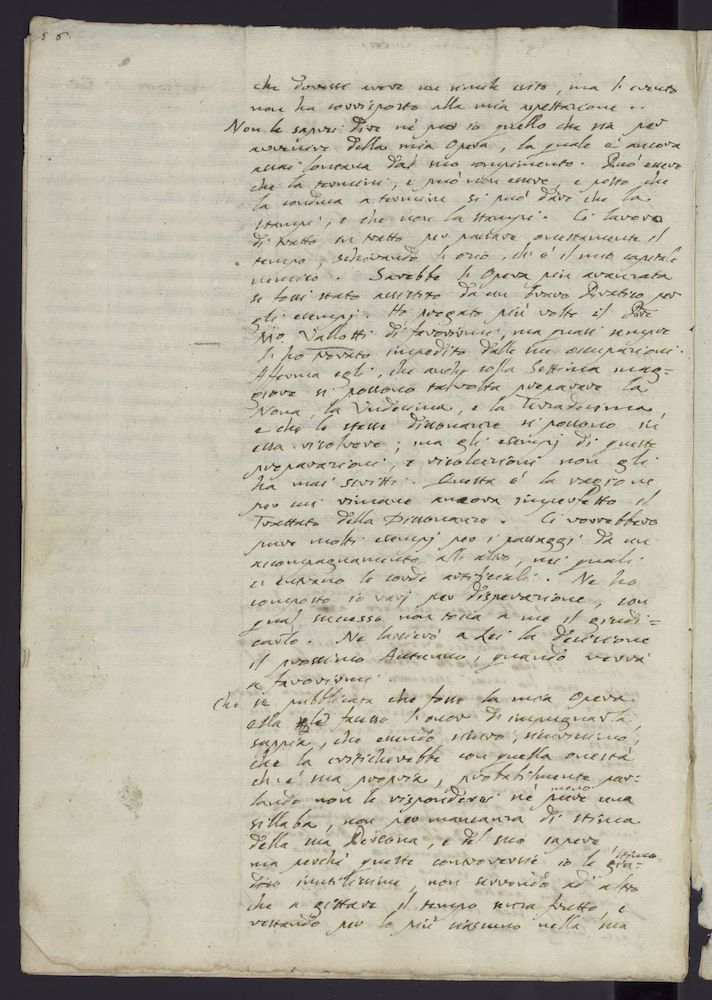 56.
che dovesse avere un simile esito, ma l'evento
non ha corrisposto alla mia aspettazione.
Non le saprei dire nè pur io quello che sia per
avvenire della mia Opera, la quale è ancora
assai lontana dal suo compimento. Può essere
che la termini, e può non essere, e posto che
la conduca a termine si può dare che la
stampi, e che non la stampi. Ci lavoro
di tratto in tratto per passare onestamente il
tempo, schivando l'ozio, ch'è il mio capitale
nemico. Sarebbe l'Opera più avanzata
se fossi stato assistito da un bravo Pratico per
gli esempj. Ho pregato più volte il Pre
Mro Vallotti di favorirmi, ma quasi sempre
l'ho trovato impedito dalle sue occupazioni.
Afferma egli, che anche colla Settima mag=
giore si possono talvolta preparare la
Nona, la Undecima, e la Terzadecima,
e che le stesse dissonanze si possono in
essa risolvere; ma gli esempj di queste
preparazioni, e risoluzioni non gli
ha mai scritti. Questa è la ragione
per cui rimane ancora imperfetto il
Trattato delle Dissonanze. Ci vorrebbero
pure molti esempj per i passaggi da un
accompagnamento all'altro, nei quali
ci entrano le corde artifiziali. Ne ho
composto io varj per disperazione, con
qual successo non tocca a me il giudi=
carlo. Ne lascierò a Lei la decisione
il prossimo Autunno, quando verrà
a favorirmi
Che se pubblicata che fosse la mia Opera
ella le facesse l'onor di impugnarla,
sappia, che essendo sicuro, sicurissimo,
che la criticherebbe con quella onestà
ch'è sua propria, probabilmente par=
lando non le risponderei nè meno una
sillaba, non per mancanza di stima
della sua Persona, e del suo sapere
ma perchè queste controversie io le stimo
inutilissime, non servendo ad altro
che a gittare il tempo senza frutto, e
restando per lo più ciascuno nella sua